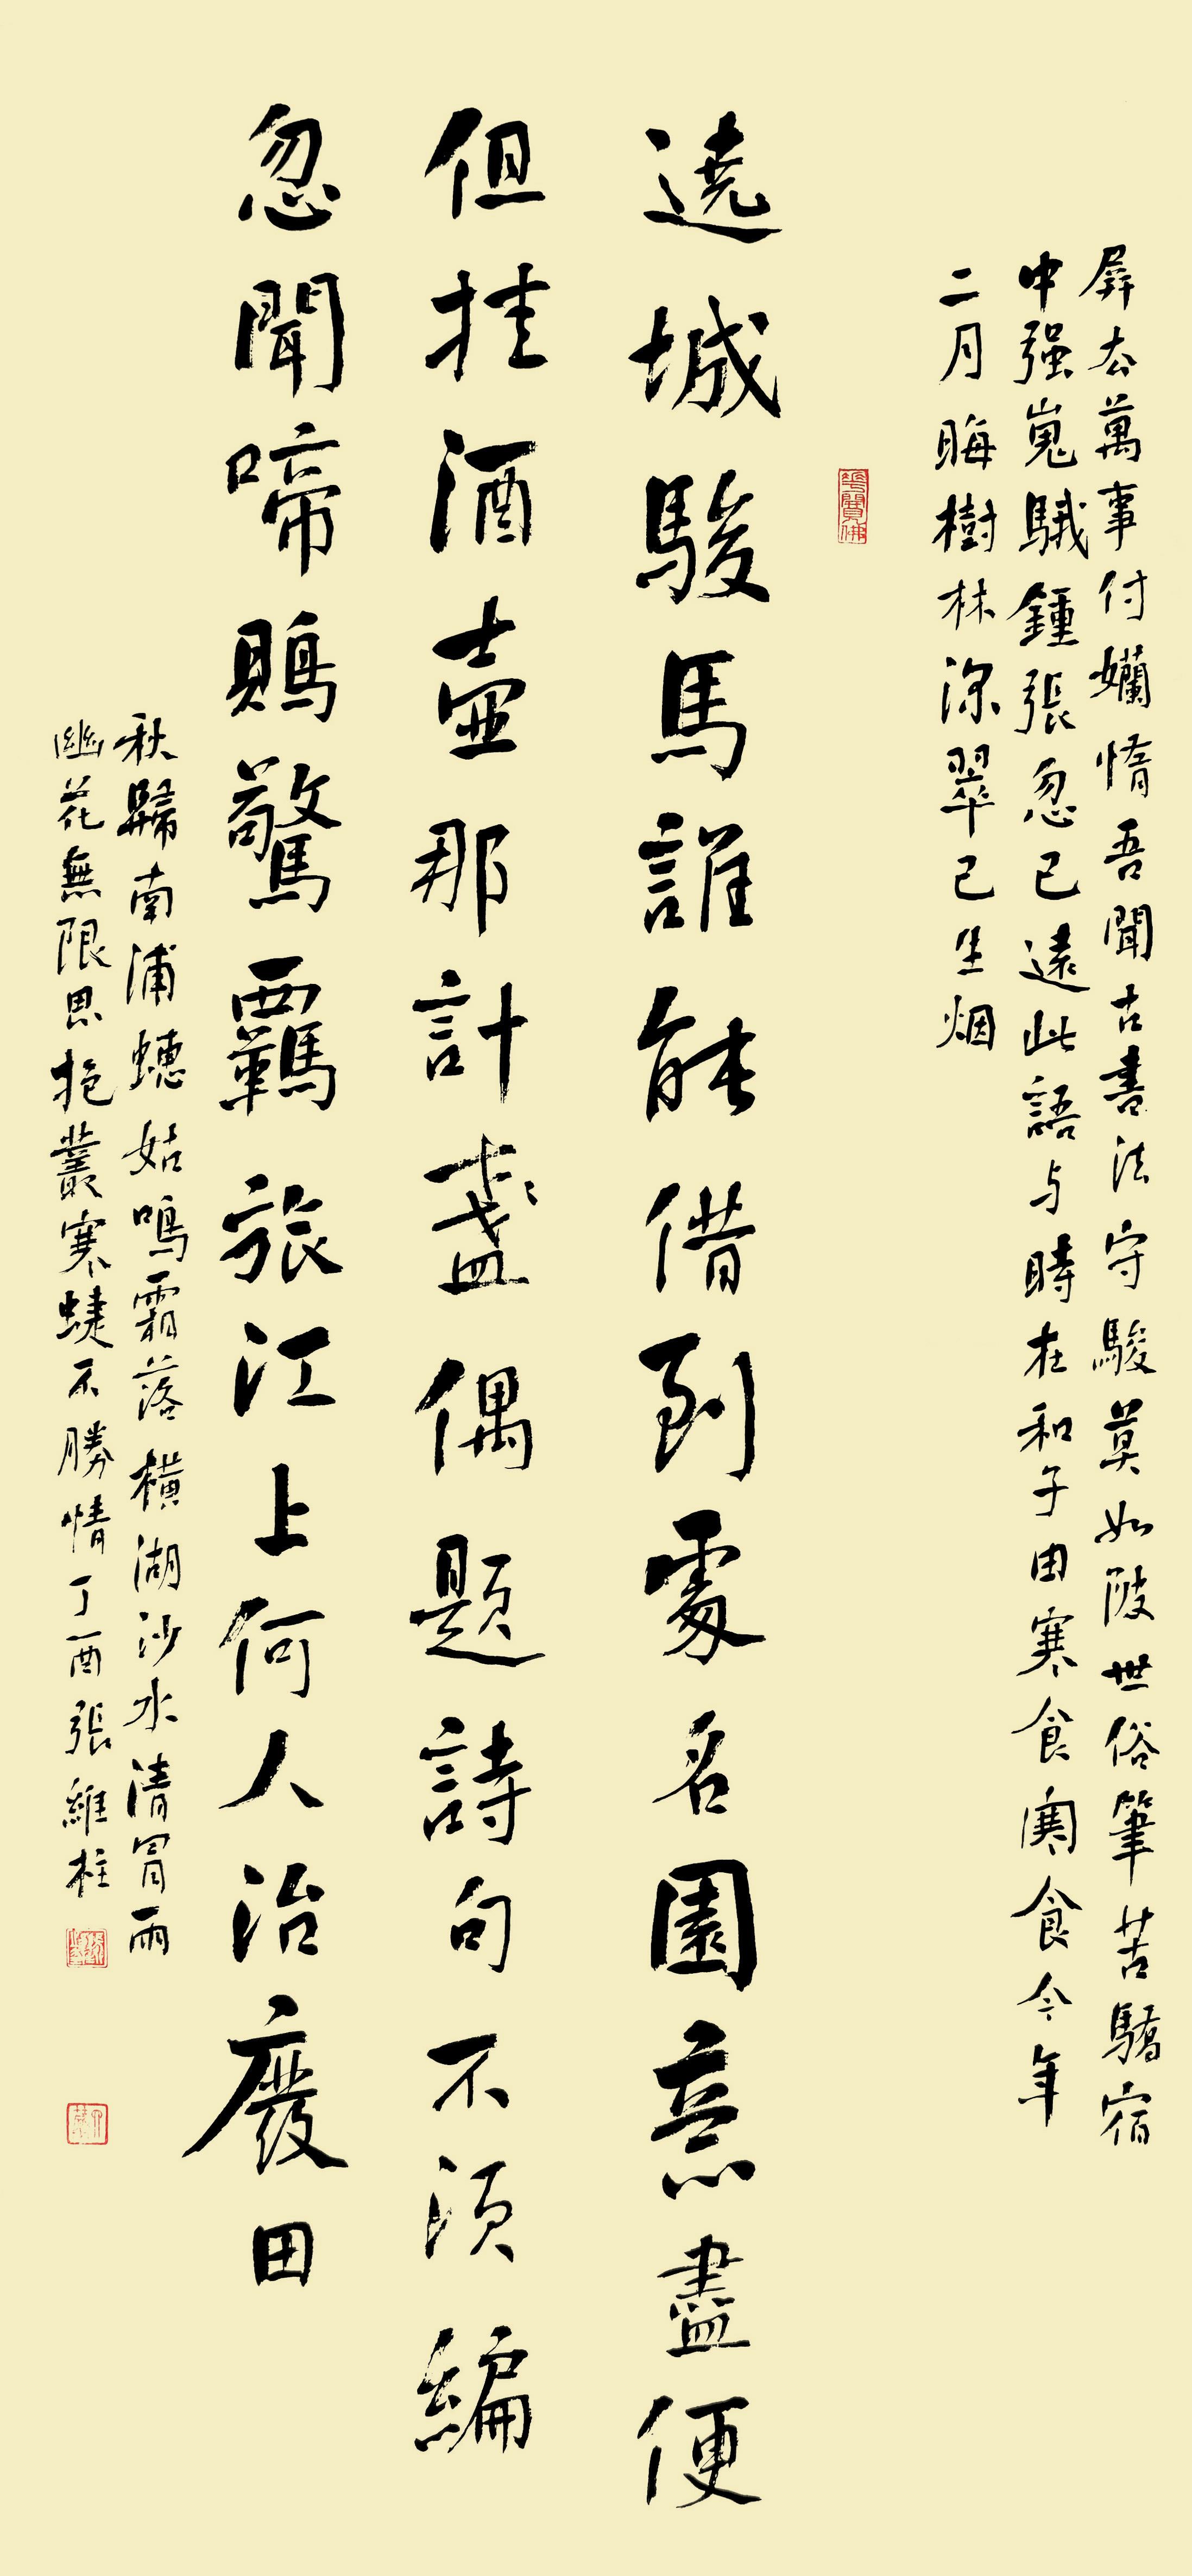 屏去萬事付嬾惰吾聞古書法守駿莫如跛世俗筆苦驕宿
中强嵬騀鍾張忽已遠此語与時左和子由寒食寒食今年
二月晦樹林深翠已生烟
遶城駿馬誰能借到處名園意盡便
但挂酒壺那計盞偶題詩句不須編
忽聞啼鵙驚羈旅江上何人治廢田
秋歸南浦蟪蛄鳴霜落橫湖沙水清冐雨
幽花無限思抱叢寒蜨不勝情丁酉張維柱